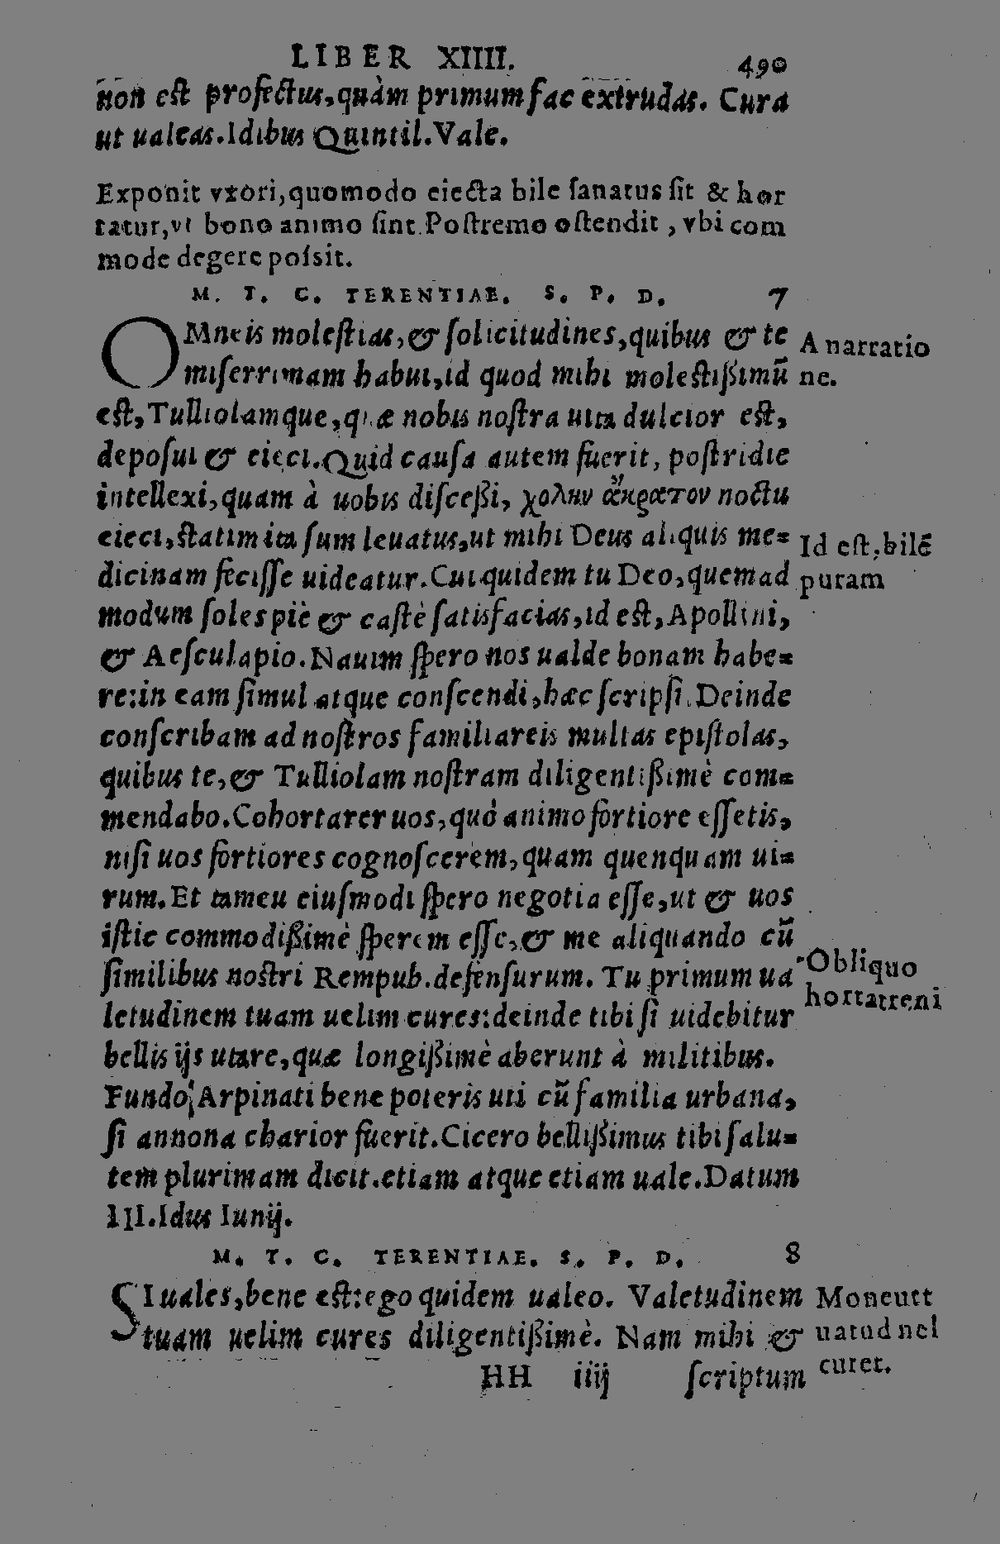 LIBER XIIII. 490
non est profectus, quàm primum fac extrudas. Cura
ut ualeas. Idibus Quintil. Vale.
Exponit vxori, quomodo eiecta bile sanatus sit & hor
tatur, vt bono animo sint. Postremo ostendit, vbi com
mode degere possit.
M. T. C. TERENTIAE. S. P. D. 7
OMneis molestias, & solicitudines, quibus & te
miserrimam habui, id quod mihi molestißimũ
est, Tulliolamque, quæ nobis nostra uita dulcior est,
deposui & eieci. Quid causa autem fuerit, postridie
intellexi, quam à uobis discessi, χολὴν ἄκρατον noctu
eieci, statim ita sum leuatus, ut mihi Deus aliquis me=
dicinam fecisse uideatur. Cui quidem tu Deo, quemad
modum soles piè & castè satisfacias, id est, Apollini,
& Aesculapio. Nauim spero nos ualde bonam habe=
re: in eam simul atque conscendi, hæc scripsi. Deinde
conscribam ad nostros familiareis multas epistolas,
quibus te, & Tulliolam nostram diligentißimè com=
mendabo. Cohortarer uos, quò animo fortiore essetis,
nisi uos fortiores cognoscerem, quam quenquam ui=
rum. Et tameu eiusmodi spero negotia esse, ut & uos
istic commodißimè sperem esse, & me aliquando cũ
similibus nostri Rempub. defensurum. Tu primum ua
letudinem tuam uelim cures: deinde tibi si uidebitur
bellis ijs utare, quæ longißimè aberunt à militibus.
Fundo Arpinati bene poteris uti cũ familia urbana,
si annona charior fuerit. Cicero bellißimus tibi salu=
tem plurimam dicit. etiam atque etiam uale. Datum
III. Idus Iunij.
M. T. C. TERENTIAE. S. P. D. 8
SI uales, bene est: ego quidem ualeo. Valetudinem
tuam uelim cures diligentißimè. Nam mihi &
HH iiij scriptum
A narratio
ne.
Id est, bilẽ
puram
Obliquo
hortat
Moneutt
curet.